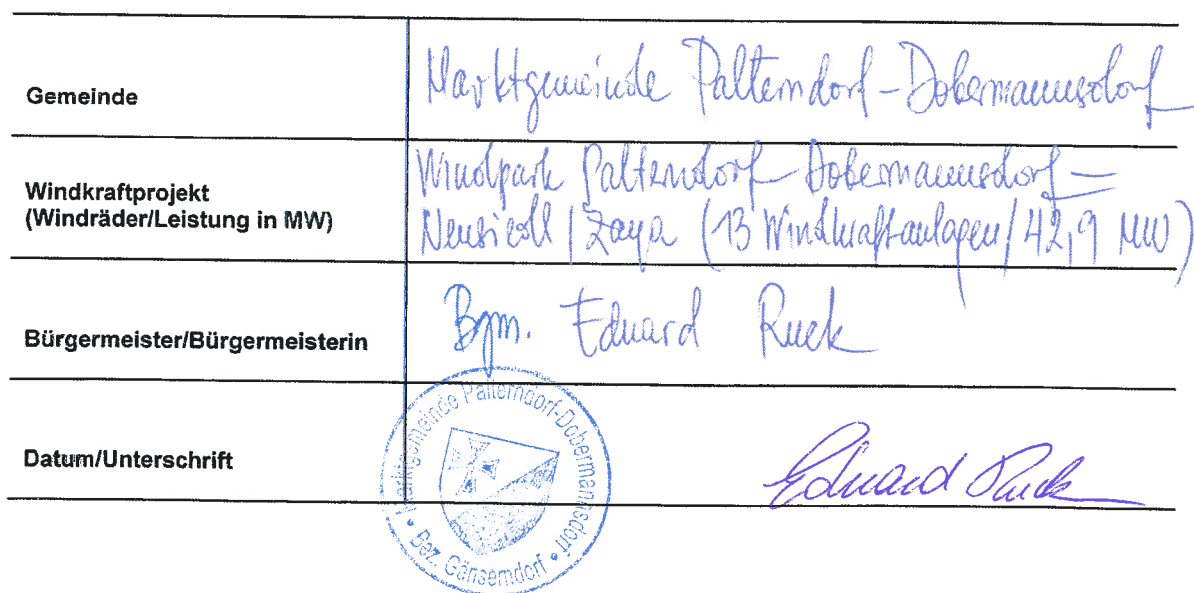 Gemeinde
Marktgemeinde Palterndorf-Dobermannsdorf
Windkraftprojekt
(Windräder/Leistung in MW)
Windpark Palterndorf-Dobermannsdorf-
Neusiedl/Zaya (13 Windkraftanlagen/42,9 MW)
Bürgermeister/Bürgermeisterin
Bgm. Eduard Ruck
Datum/Unterschrift
Marktgemeinde Palterndorf-Dobermannsdorf
• Bez. Gänserndorf •
Eduard Ruck